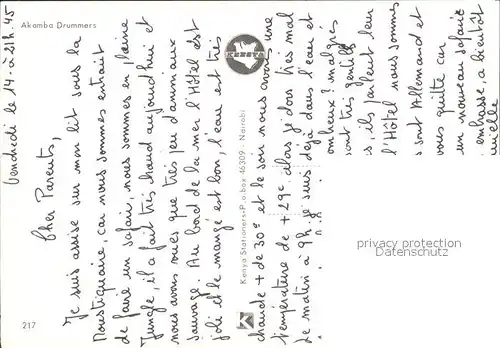 Akamba Drummers
Vendredi le 14 - à 21h.45
Cher Parents,
Je suis assise sur mon lit sous la
moustiquaire, car nous sommes entrain
de faire un safari, nous sommes en plaine
Jungle, il a fait très chaud aujourd'hui et
nous avons vues que très peu d'animaux
sauvage. Au bord de la mer l'Hôtel est
joli et le mangé est bon, l'eau est très
chaude + de 30° et le soir nous avons une
température de + 29° alors je dors très mal
Le matin à 9h je suis déjà dans l'eau et
malgres
sont très gentils
ils parlent leur
l'Hôtel nous sommes
sont Allemand et
vous quitte car
un nouveau safari
embrasse, a bientôt
KENSTA
Kenya Stationers P.o.box 46309 - Nairobi
217
privacy protection
Datenschutz